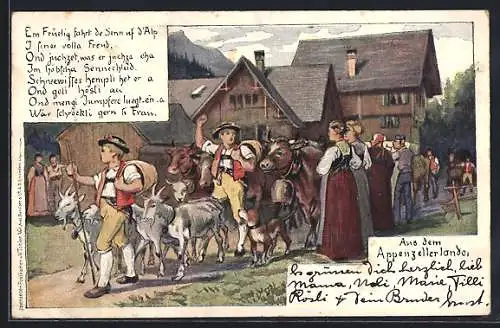 Em Früelig fahrt de Senn uf d'Alp
I siner volla Freud,
Ond juchzet, was er juchza cha
Im hobscha Sennechlüd.
Schneewisses Hempli het er a
Ond geli Hösli au
Ond mengi Jumpfere luegt-en-a
Wär schröckli gern si Frau.
Aus dem
Appenzellerlande,
Es grüssen Dich herzlich, lieb
Mama, Noli, Marie, Tilli
Rösli & Dein Bruder Ernst.